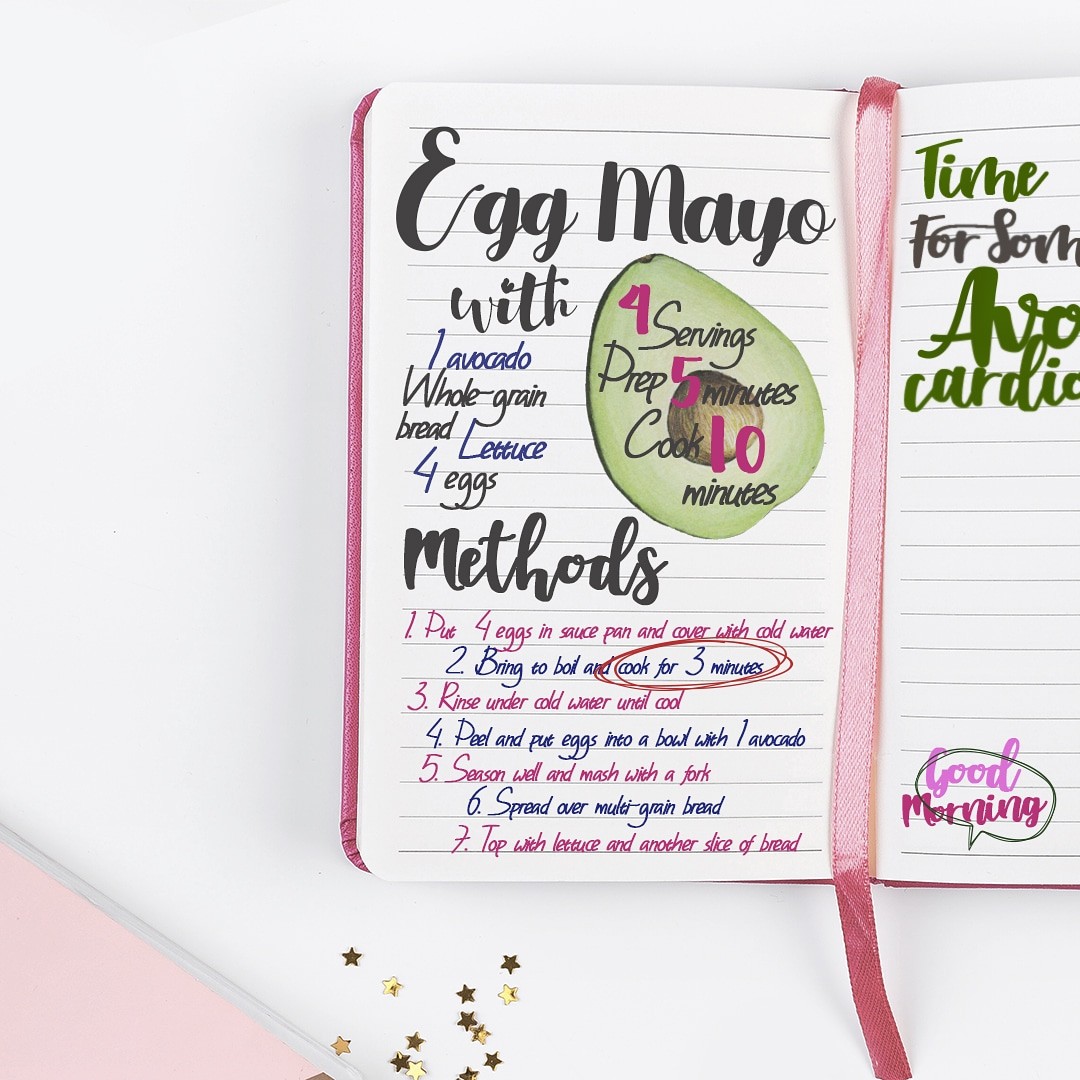 Egg Mayo
with
1 avocado
Whole-grain
bread Lettuce
4 eggs
4 Servings
Prep 5 minutes
Cook 10
minutes
Methods
1. Put 4 eggs in sauce pan and cover with cold water
2. Bring to boil and cook for 3 minutes
3. Rinse under cold water until cool
4. Peel and put eggs into a bowl with 1 avocado
5. Season well and mash with a fork
6. Spread over multi-grain bread
7. Top with lettuce and another slice of bread
Time
For Som
Avo
cardio
Good
Morning